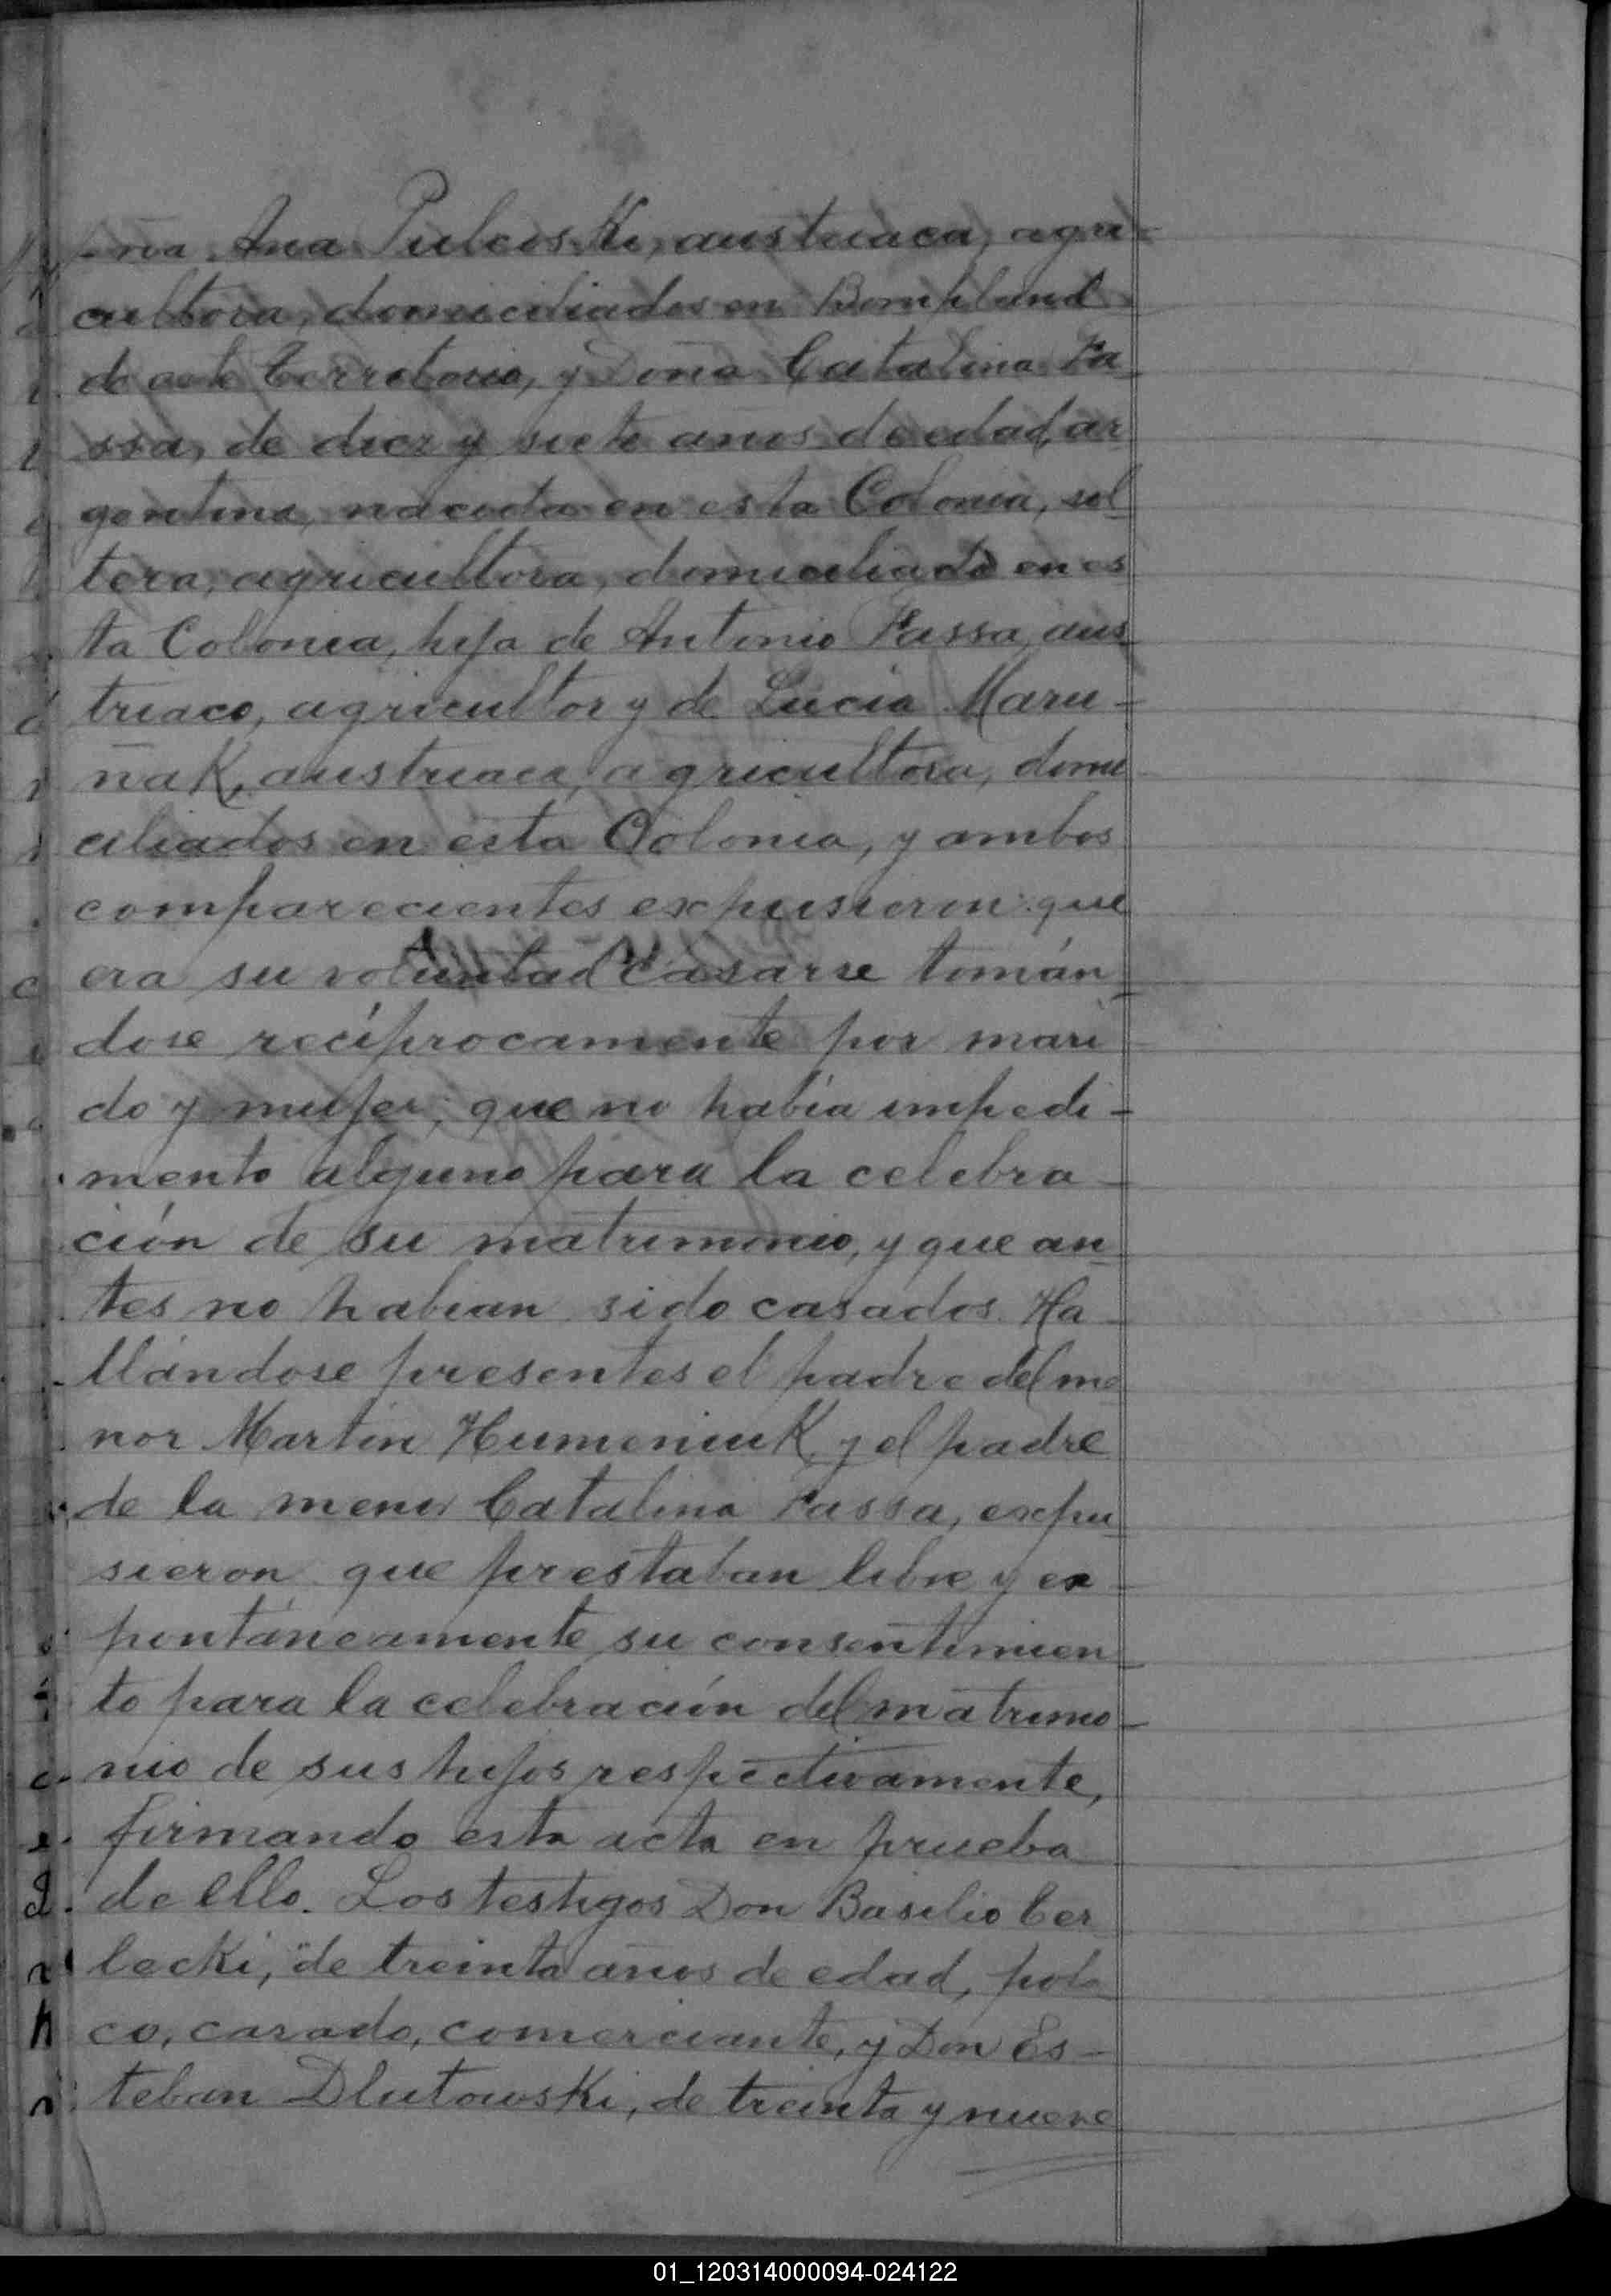 ña Ana Pulcoski, austriaca, agri-
cultora, domiciliados en Bompland
de este Territorio, y Doña Catalina Fa-
ssa, de diez y siete años de edad, ar
gentina, nacida en esta Colonia, sol
tera, agricultora, domiciliada en es
ta Colonia, hija de Antonio Fassa, aus
triaco, agricultor y de Lucia Maru-
ñaK, austriaca, agricultora, domi
ciliados en esta Colonia, y ambos
comparecientes expusieron: que
era su voluntad casarse tomán
dose recíprocamente por mari
do y mujer; que no había impedi-
mento alguno para la celebra-
ción de su matrimonio, y que an
tes no habian sido casados. Ha-
llándose presentes el padre del me
nor Martin HumeniuK y el padre
de la menor Catalina Fassa, expu
sieron que prestaban libre y ex-
pontáneamente su consentimien
to para la celebración del matrimo-
nio de sus hijos respectivamente,
firmando esta acta en prueba
de ello. Los testigos Don Basilio Ter
lecki, de treinta años de edad, pola
co, casado, comerciante, y Don Es-
teban Dlutowski, de treinta y nueve
01_120314000094-024122